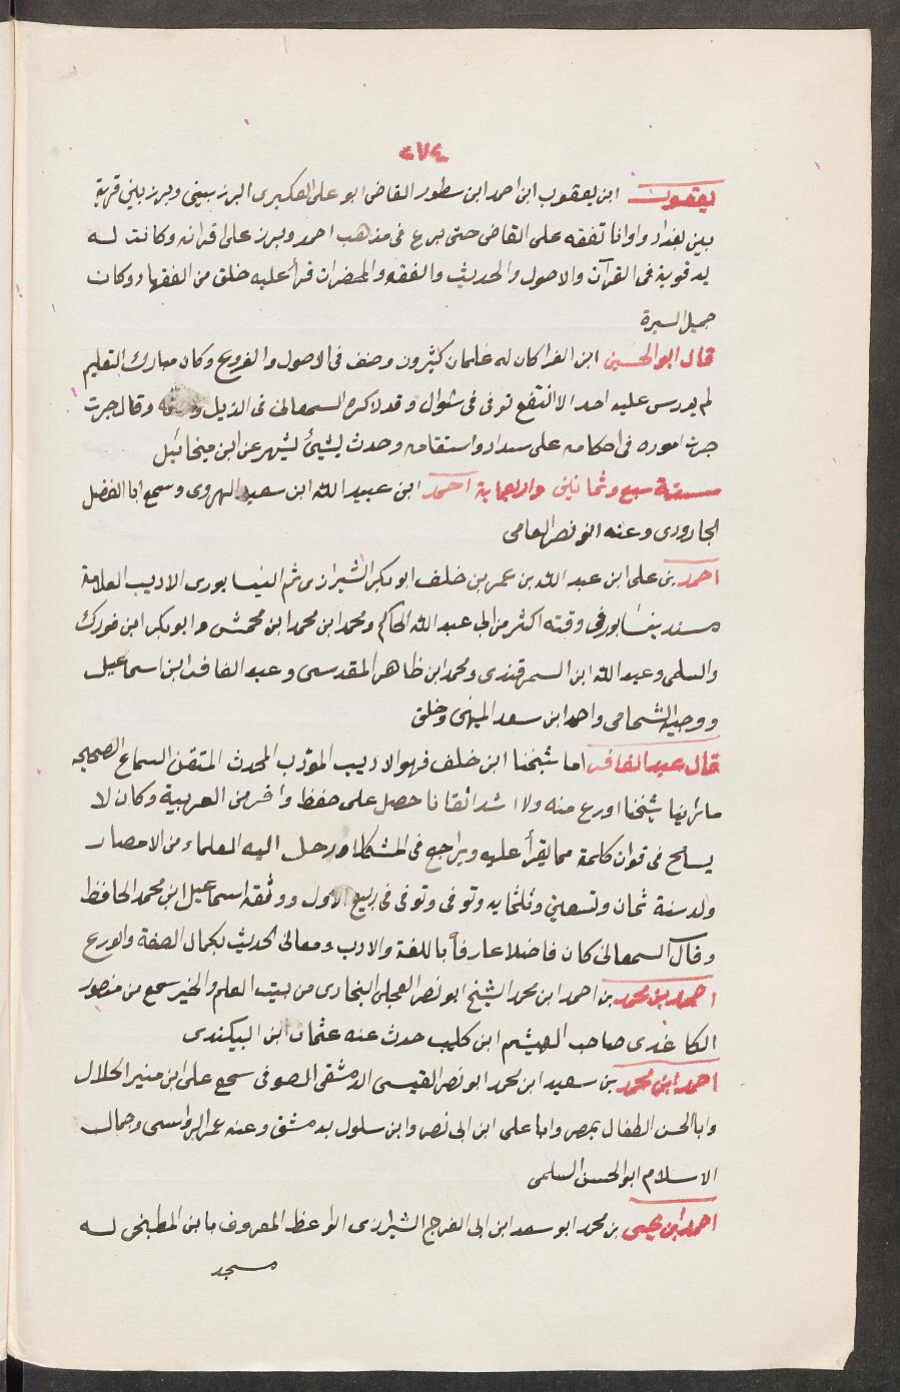 ٢٧٤
يعقوب ابن يعقوب ابن احمد ابن سطور القاضى ابو على العكبرى البرزبينى وبرزبين قرية
بين بغداد واوانا تفقه على القاضى حتى برع فى مذهب احمد وبرز على اقرانه وكانت له
يد قوية فى القرآن والاصول والحديث والفقه والمحضرات قرأ عليه خلق من الفقهاء وكان
جميل السيرة
قال ابو الحسين ابن الفرا كان له غلمان كثيرون وصنف فى الاصول والفروع وكان مبارك التعليم
لم يدرس عليه احد الا انتفع توفى فى شوال وقد ذكره السمعانى فى الذيل وقال جرت
جرت اموره فى احكامه على سداد واستقامه وحدث بشيئ يشهر عن ابن ميخائيل
سنة سبع وثمانين واربعماية احمد ابن عبيد الله ابن سعيد الهروى وسمع ابا الفضل
الجارودى وعنه ابو نصر العامى
احمد بن على ابن عبد الله بن عمر بن خلف ابو بكر الشيرازى ثم النيسابورى الاديب العلامة
مسند نيسابور فى وقته اكثر من ابى عبد الله الحاكم ومحمد ابن محمد ابن محمش وابو بكر ابن فورك
والسلمى وعبد الله ابن السمرقندى ومحمد ابن ظاهر المقدسى وعبد الغافر ابن اسماعيل
ووجيه الشحامى واحمد ابن سعد الميهنى وخلق
قال عبد الغافر اما شيخنا ابن خلف فهو الاديب المؤدب المحدث المتقن السماع الصحيحه
ما راينا شيخنا اورع منه ولا اشد اتقانا حصل على حفظ وافر من العربية وكان لا
يسامح فى فوات كلمة مما يقرأ عليه ويراجع فى المشكلات ورحل اليه العلماء من الامصار
ولد سنة ثمان وتسعين وثلثمايه وتوفى وتوفى فى ربيع الاول ووثقه اسماعيل ابن محمد الحافظ
وقال السمعانى كان فاضلا عارفاً باللغة والادب ومعانى الحديث بكمال العفة والورع
احمد بن محمد بن احمد ابن محمد الشيخ ابو نصر العجلى البخارى من بيت العلم والخير سمع من منصور
الكاغدى صاحب الهيثم ابن كليب حدث عنه عثمان ابن البيكندى
احمد ابن محمد بن سعيد ابن محمد ابو نصر القيسى الدمشقى الصوفى سمع على ابن منير الخلال
وابا الحسن الطفال بمصر وابا على ابن ابى نصر وابن سلول بدمشق وعنه عمر الرواسى وجمال
الاسلام ابو الحسن السلمى
احمد ابن يحيى بن محمد ابو سعد ابن ابى الفرج الشيرازى الواعظ المعروف بابن المطبخى له
مسجد